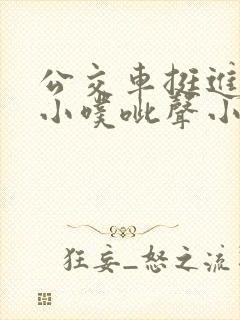 公交車挺進
小噗呲聲小
狂妄_怒之流